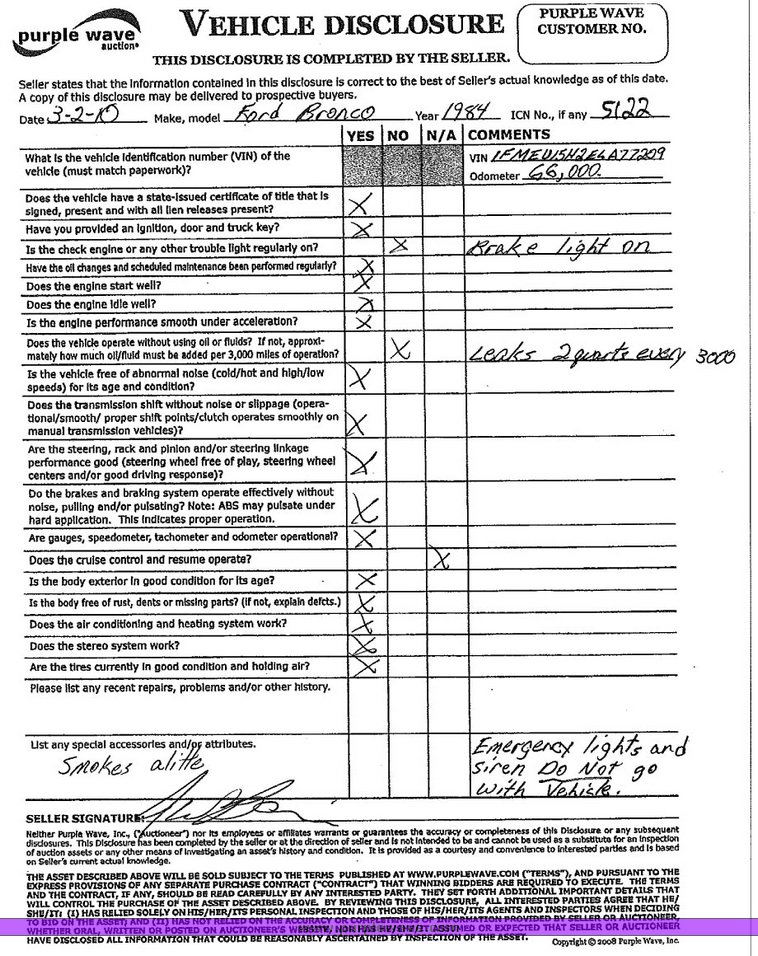 purple wave
auction®
VEHICLE DISCLOSURE
PURPLE WAVE
CUSTOMER NO.
THIS DISCLOSURE IS COMPLETED BY THE SELLER.
Seller states that the information contained in this disclosure is correct to the best of Seller's actual knowledge as of this date.
A copy of this disclosure may be delivered to prospective buyers.
Date 3-2-10 Make, model Ford Bronco Year 1984 ICN No., if any 5122
YES NO N/A COMMENTS
What is the vehicle identification number (VIN) of the
vehicle (must match paperwork)?
VIN 1FMEU15H2ELA77209
Odometer 66,000.
Does the vehicle have a state-issued certificate of title that is
signed, present and with all lien releases present? X
Have you provided an ignition, door and truck key? X
Is the check engine or any other trouble light regularly on? X Brake light on
Have the oil changes and scheduled maintenance been performed regularly? X
Does the engine start well? X
Does the engine idle well? X
Is the engine performance smooth under acceleration? X
Does the vehicle operate without using oil or fluids? If not, approxi-
mately how much oil/fluid must be added per 3,000 miles of operation? X Leaks 2 quarts every 3000
Is the vehicle free of abnormal noise (cold/hot and high/low
speeds) for its age and condition? X
Does the transmission shift without noise or slippage (opera-
tional/smooth/ proper shift points/clutch operates smoothly on
manual transmission vehicles)? X
Are the steering, rack and pinion and/or steering linkage
performance good (steering wheel free of play, steering wheel
centers and/or good driving response)? X
Do the brakes and braking system operate effectively without
noise, pulling and/or pulsating? Note: ABS may pulsate under
hard application. This indicates proper operation. X
Are gauges, speedometer, tachometer and odometer operational? X
Does the cruise control and resume operate? X
Is the body exterior in good condition for its age? X
Is the body free of rust, dents or missing parts? (if not, explain defcts.) X
Does the air conditioning and heating system work? X
Does the stereo system work? X
Are the tires currently in good condition and holding air? X
Please list any recent repairs, problems and/or other history.
List any special accessories and/or attributes.
Smokes a little
Emergency lights and
siren Do Not go
with Vehicle.
SELLER SIGNATURE:
Neither Purple Wave, Inc., ("Auctioneer") nor its employees or affiliates warrants or guarantees the accuracy or completeness of this Disclosure or any subsequent
disclosures. This Disclosure has been completed by the seller or at the direction of seller and is not intended to be and cannot be used as a substitute for an inspection
of auction assets or any other means of investigating an asset's history and condition. It is provided as a courtesy and convenience to interested parties and is based
on Seller's current actual knowledge.
THE ASSET DESCRIBED ABOVE WILL BE SOLD SUBJECT TO THE TERMS PUBLISHED AT WWW.PURPLEWAVE.COM ("TERMS"), AND PURSUANT TO THE
EXPRESS PROVISIONS OF ANY SEPARATE PURCHASE CONTRACT ("CONTRACT") THAT WINNING BIDDERS ARE REQUIRED TO EXECUTE. THE TERMS
AND THE CONTRACT, IF ANY, SHOULD BE READ CAREFULLY BY ANY INTERESTED PARTY. THEY SET FORTH ADDITIONAL IMPORTANT DETAILS THAT
WILL CONTROL THE PURCHASE OF THE ASSET DESCRIBED ABOVE. BY REVIEWING THIS DISCLOSURE, ALL INTERESTED PARTIES AGREE THAT HE/
SHE/IT: (I) HAS RELIED SOLELY ON HIS/HER/ITS PERSONAL INSPECTION AND THOSE OF HIS/HER/ITS AGENTS AND INSPECTORS WHEN DECIDING
TO BID ON THE ASSET; AND (II) HAS NOT RELIED ON THE ACCURACY OR COMPLETENESS OF INFORMATION PROVIDED BY SELLER OR AUCTIONEER,
WHETHER ORAL, WRITTEN OR POSTED ON AUCTIONEER'S WEBSITE, NOR HAS HE/SHE/IT ASSUMED OR EXPECTED THAT SELLER OR AUCTIONEER
HAVE DISCLOSED ALL INFORMATION THAT COULD BE REASONABLY ASCERTAINED BY INSPECTION OF THE ASSET.
Copyright © 2008 Purple Wave, Inc.